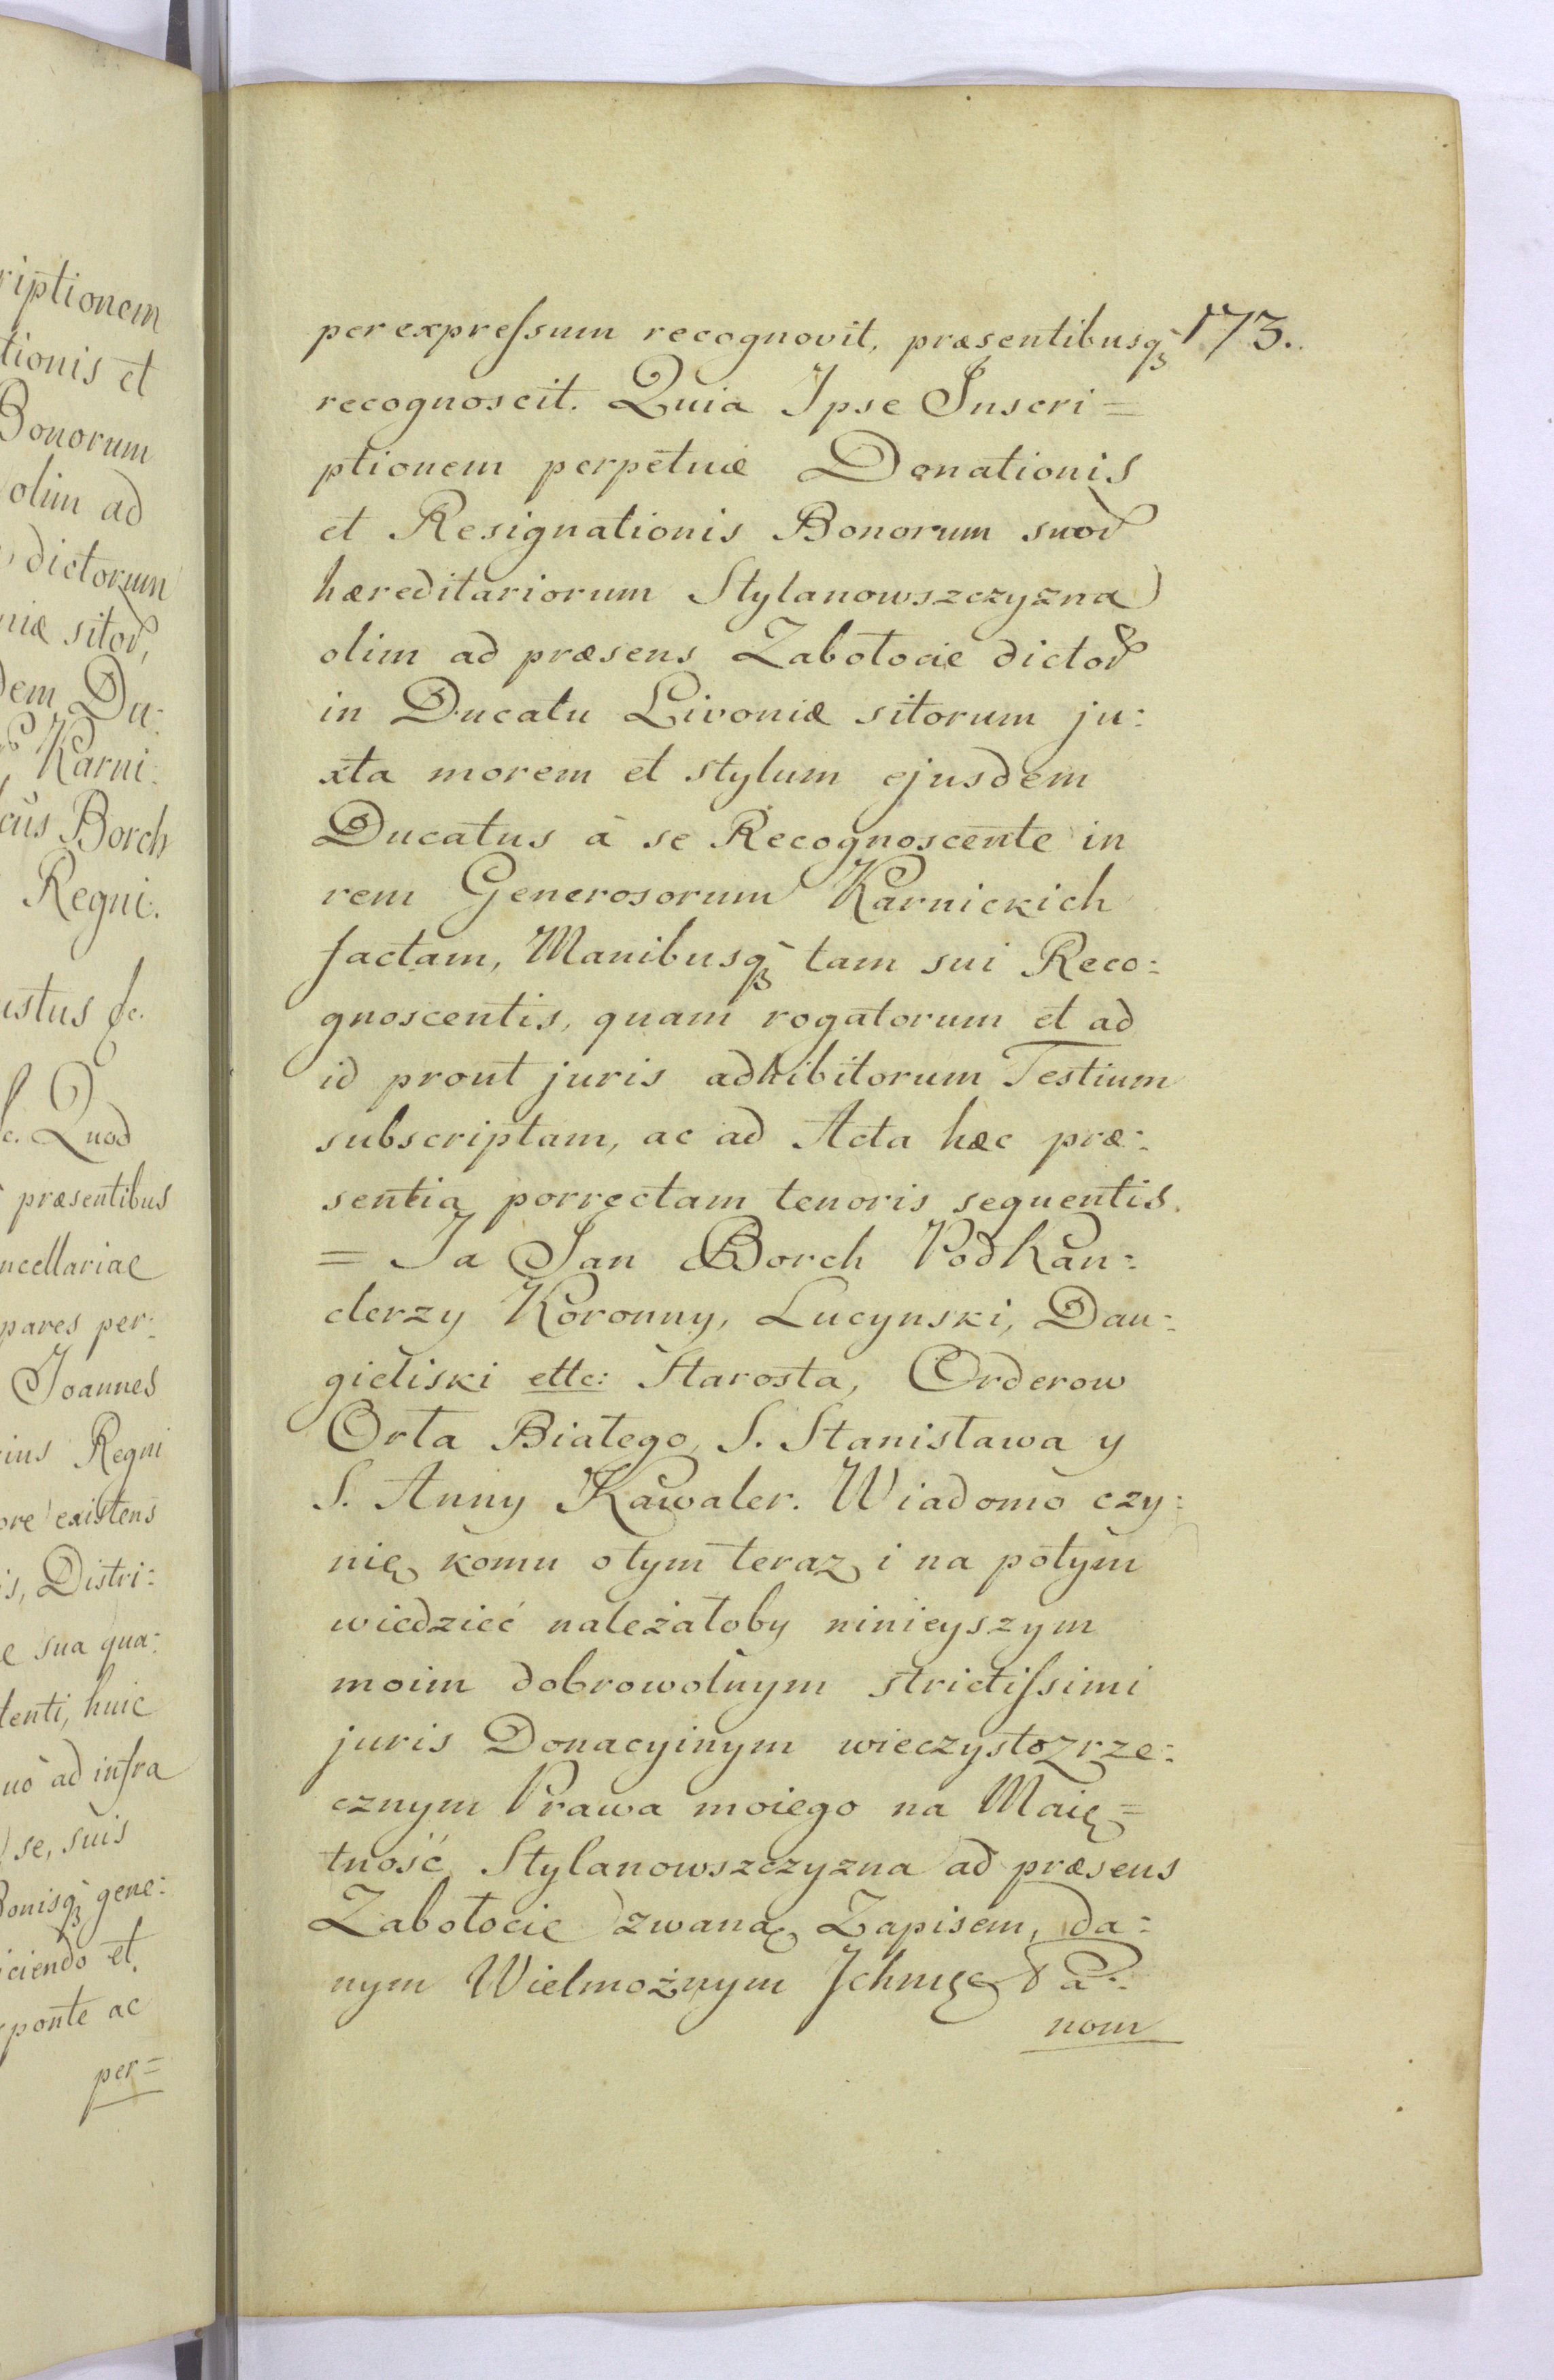 riptionem
tionis et
Bonorum
olim ad
dictorum
niæ sitor̃,
dem Du:
Karni:
cus Borch
Regni.
ustus &c.
&c. Quod
præsentibus
ncellariae
pares per:
Joannes
ius Regni
ore existens
is, Distri:
e sua qua:
tenti, huic
uo ad infra
se, suis
Bonisqꝫ gene:
iciendo et
ponte ac
per=
173.
per expreſsum recognovit, præsentibusqꝫ
recognoscit. Quia Ipse Inscri=
ptionem perpetuæ Donationis
et Resignationis Bonorum suor̃
hæreditariorum Stylanowszczyzna
olim ad præsens Zabołocie dictor̃
in Ducatu Livoniæ sitorum ju:
xta morem et stylum ejusdem
Ducatus à se Recognoscente in
rem Generosorum Karnickich
factam, Manibusqꝫ tam sui Reco:
gnoscentis, quam rogatorum et ad
id prout juris adhibitorum Testium
subscriptam, ac ad Acta hæc præ:
sentia porrectam tenoris sequentis.
= Ja Jan Borch Podkan:
clerzy Koronny, Lucynski, Dau:
gieliski ettc: Starosta, Orderow
Orła Białego, S. Stanisława y
S. Anny Kawaler. Wiadomo czy:
nię komu o tym teraz i na potym
wiedzieć należałoby ninieyszym
moim dobrowolnym strictiſsimi
juris Donacyinym wieczystozrze:
cznym Prawa moiego na Maię=
tność Stylanowszczyzna ad præsens
Zabołocie zwaną Zapisem, da:
nym Wielmożnym Ichmę Pa:
nom